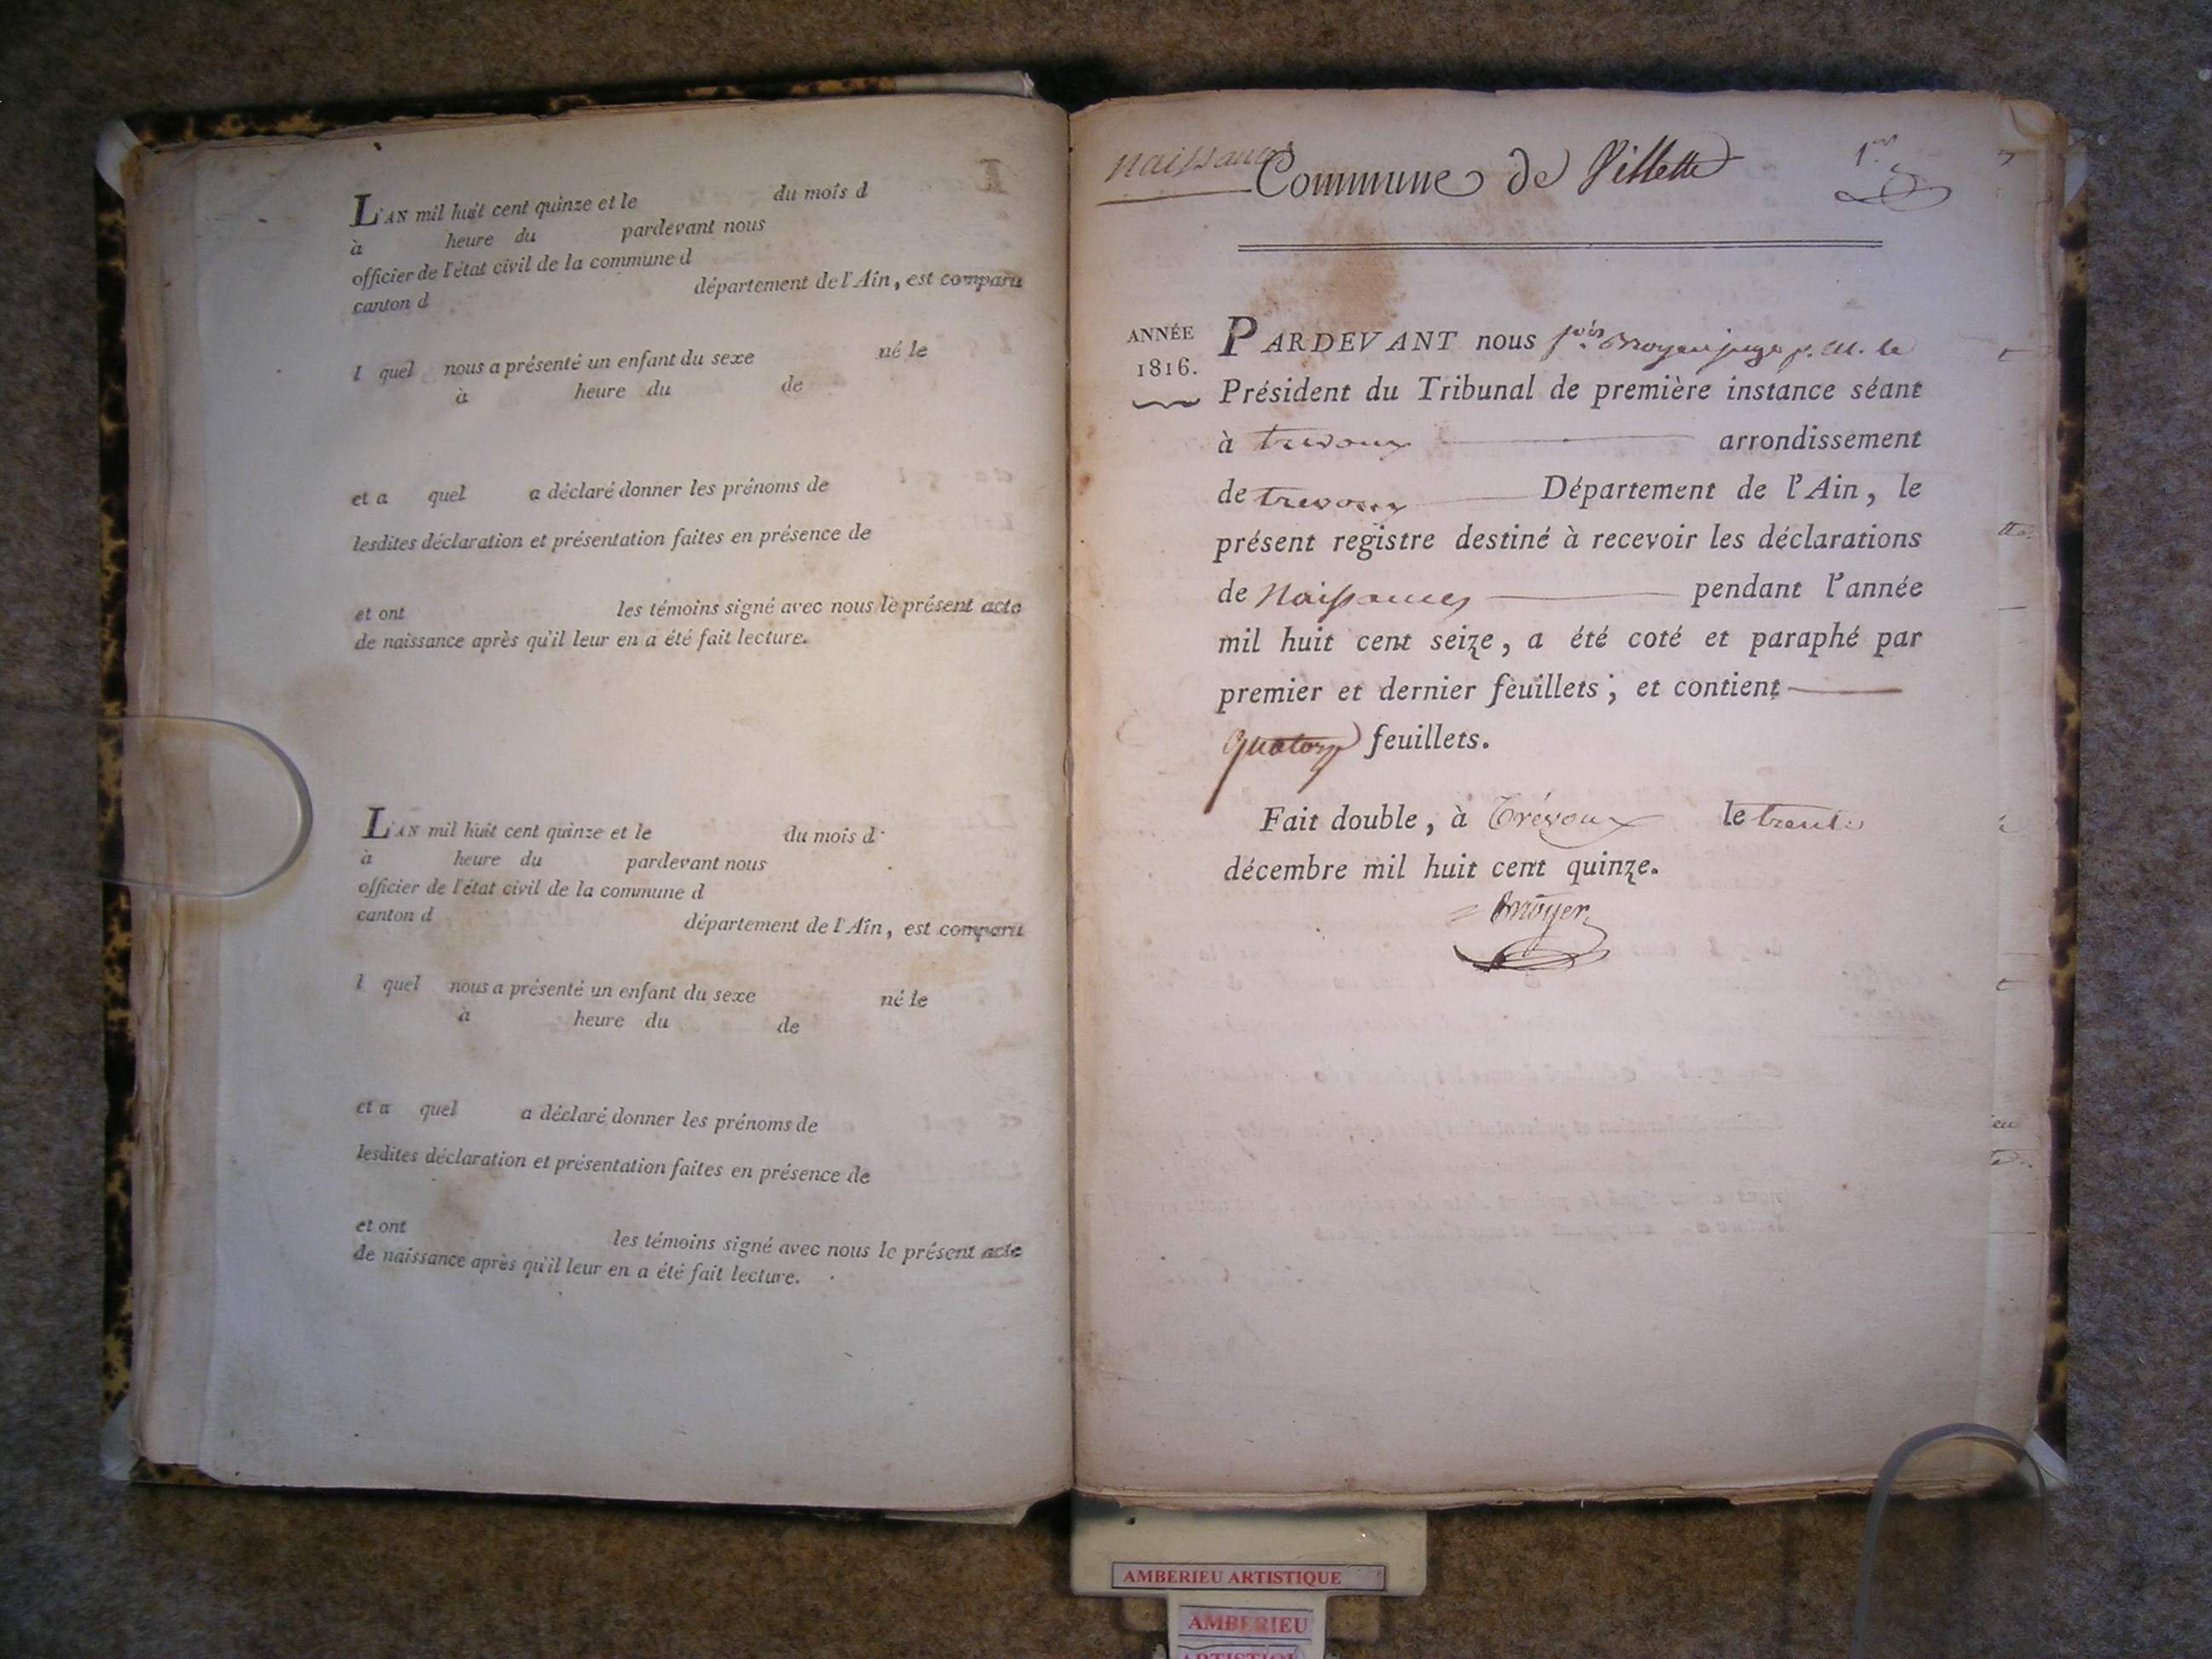 L'AN mil huit cent quinze et le du mois d
à heure du pardevant nous
officier de l'état civil de la commune d
canton d département de l'Ain, est comparu
l quel nous a présenté un enfant du sexe né le
à heure du de
et a quel a déclaré donner les prénoms de
lesdites déclaration et présentation faites en présence de
et ont les témoins signé avec nous le présent acte
de naissance après qu'il leur en a été fait lecture.
L'AN mil huit cent quinze et le du mois d
à heure du pardevant nous
officier de l'état civil de la commune d
canton d département de l'Ain, est comparu
l quel nous a présenté un enfant du sexe né le
à heure du de
et a quel a déclaré donner les prénoms de
lesdites déclaration et présentation faites en présence de
et ont les témoins signé avec nous le présent acte
de naissance après qu'il leur en a été fait lecture.
naissances
Commune de Villette
1er
ANNÉE
1816.
PARDEVANT nous juge p. M. le
Président du Tribunal de première instance séant
à trevoux arrondissement
de trevoux Département de l'Ain, le
présent registre destiné à recevoir les déclarations
de Naissances pendant l'année
mil huit cent seize, a été coté et paraphé par
premier et dernier feuillets; et contient
quatorze feuillets.
Fait double, à Trévoux le trente
décembre mil huit cent quinze.
AMBERIEU ARTISTIQUE
AMBERIEU
ARTISTIQU